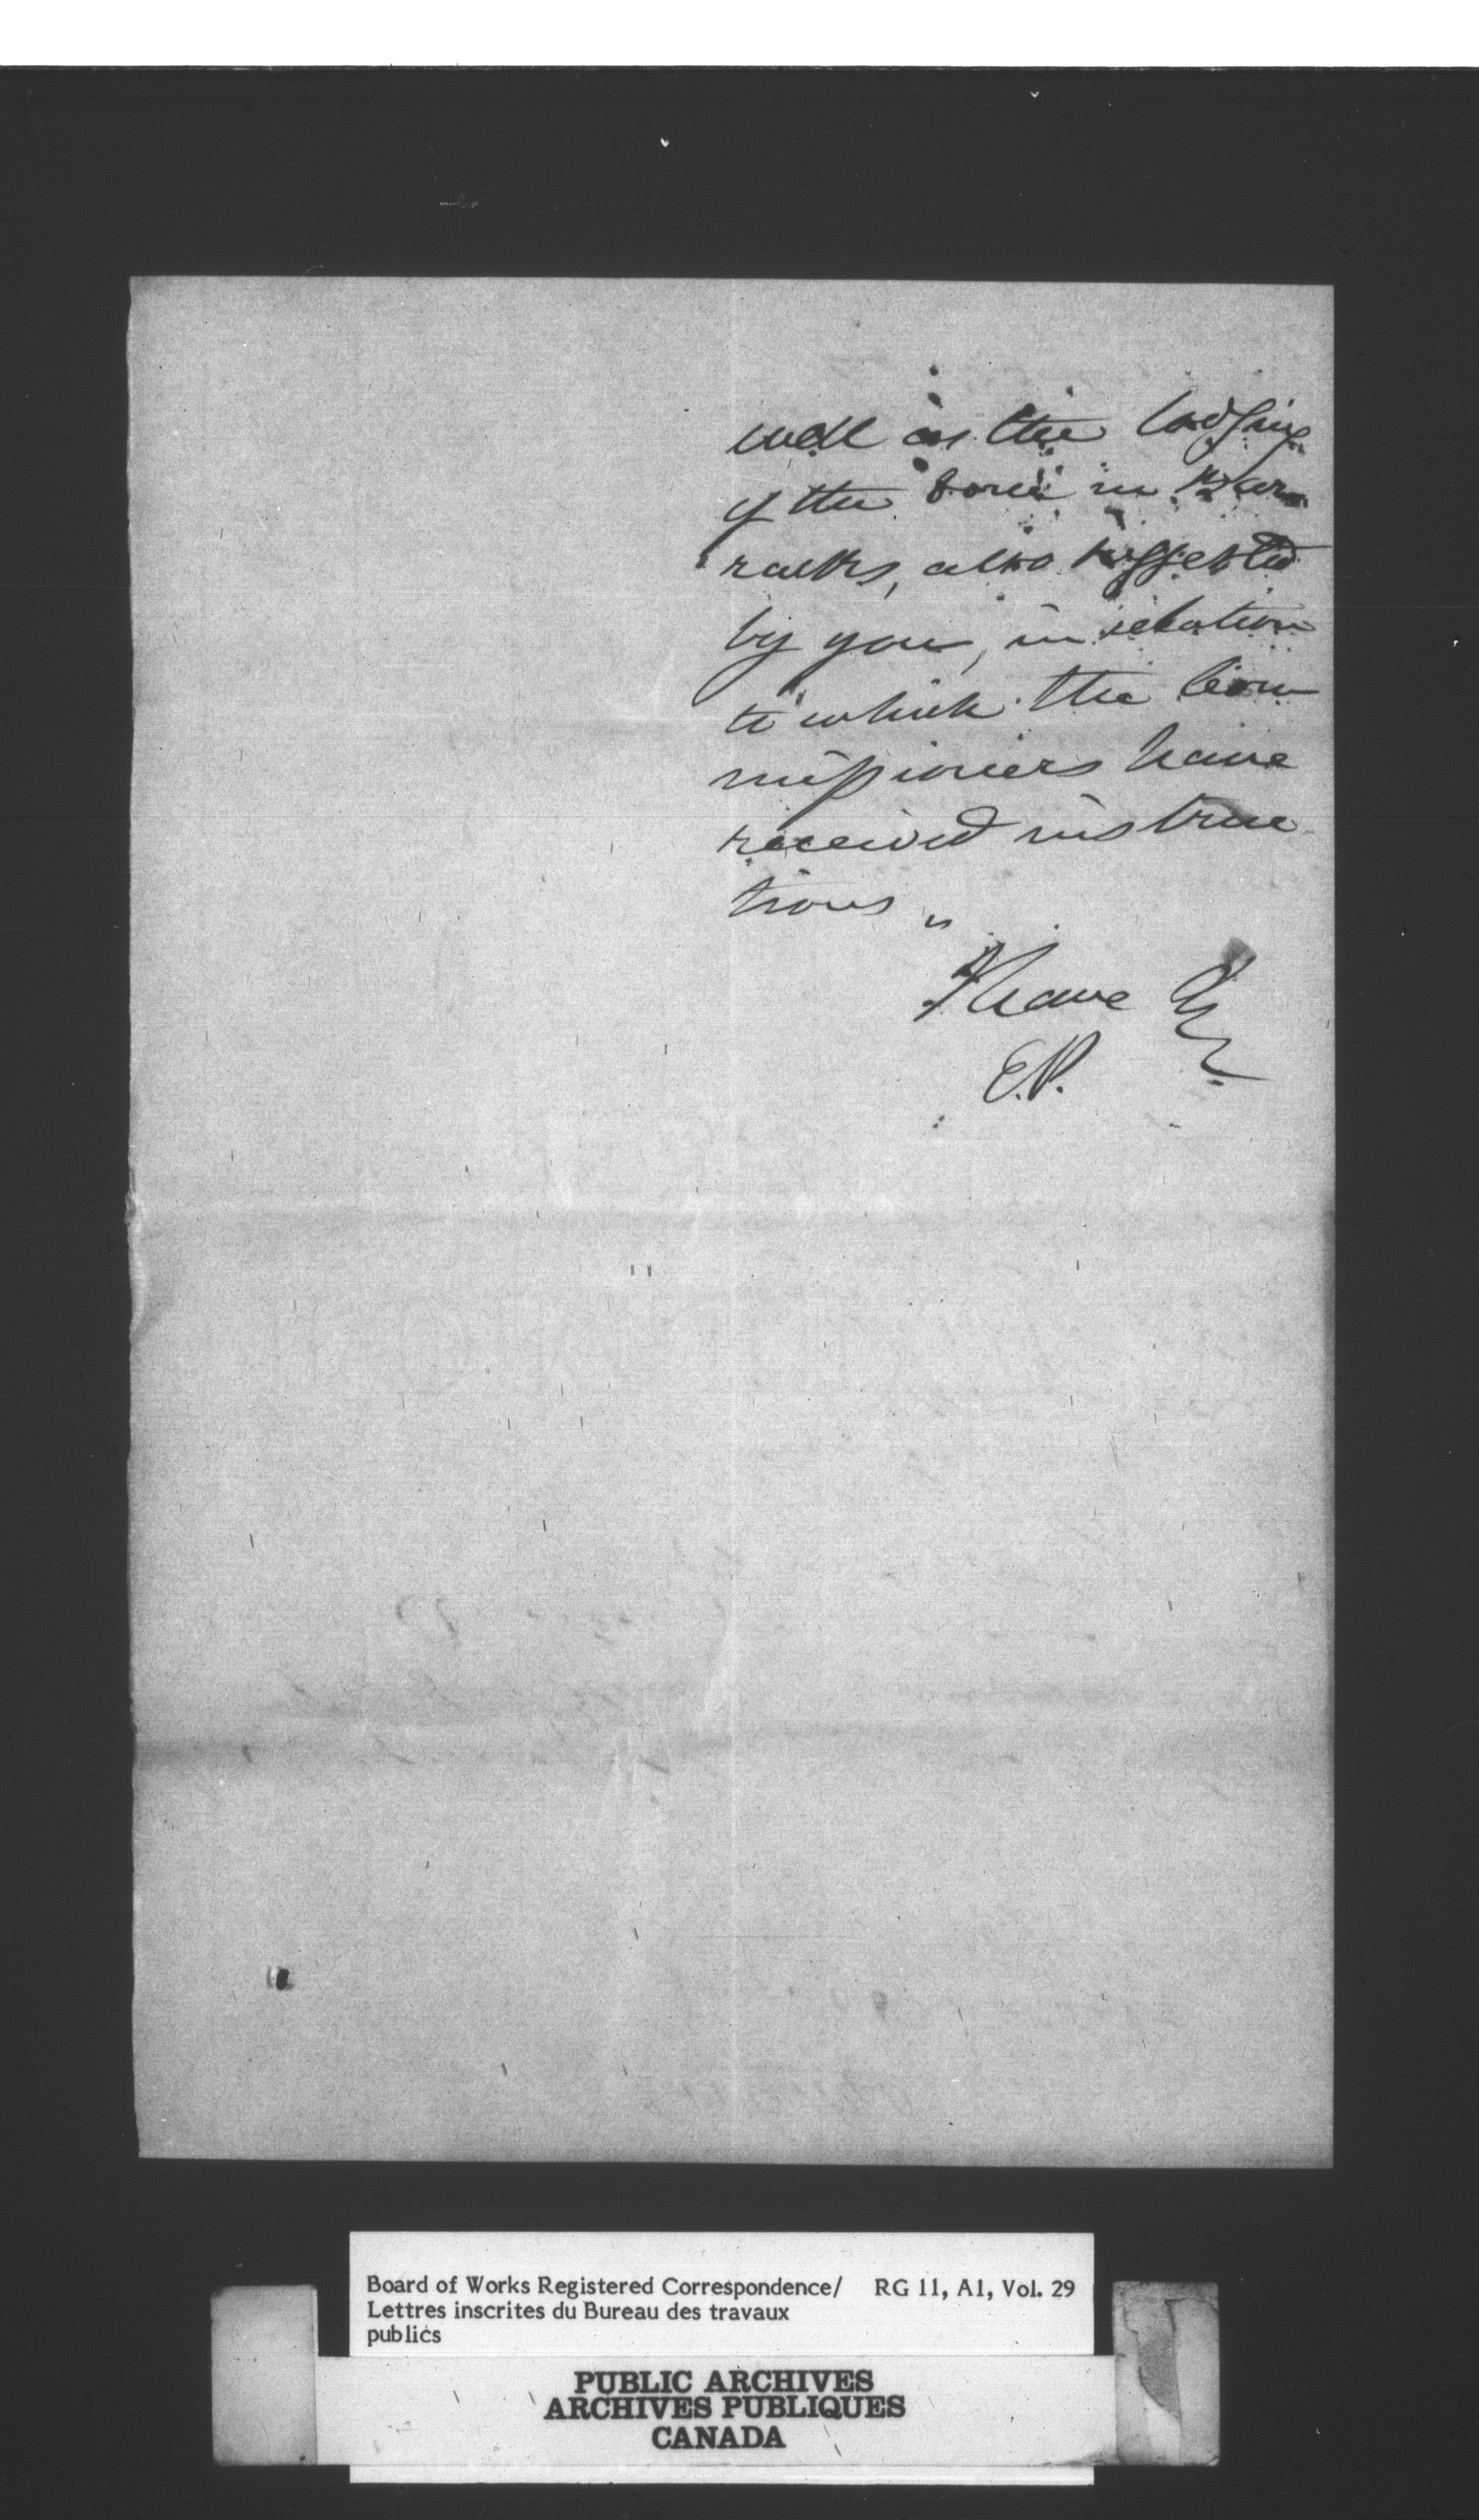 well as the lodging
of the force in Bar-
racks, also suggested
by you, in relation
to which the Com
missioners have
received instruc
tions "
I have &c
E.P.
Board of Works Registered Correspondence/ RG 11, A1, Vol. 29
Lettres inscrites du Bureau des travaux
publics
PUBLIC ARCHIVES
ARCHIVES PUBLIQUES
CANADA